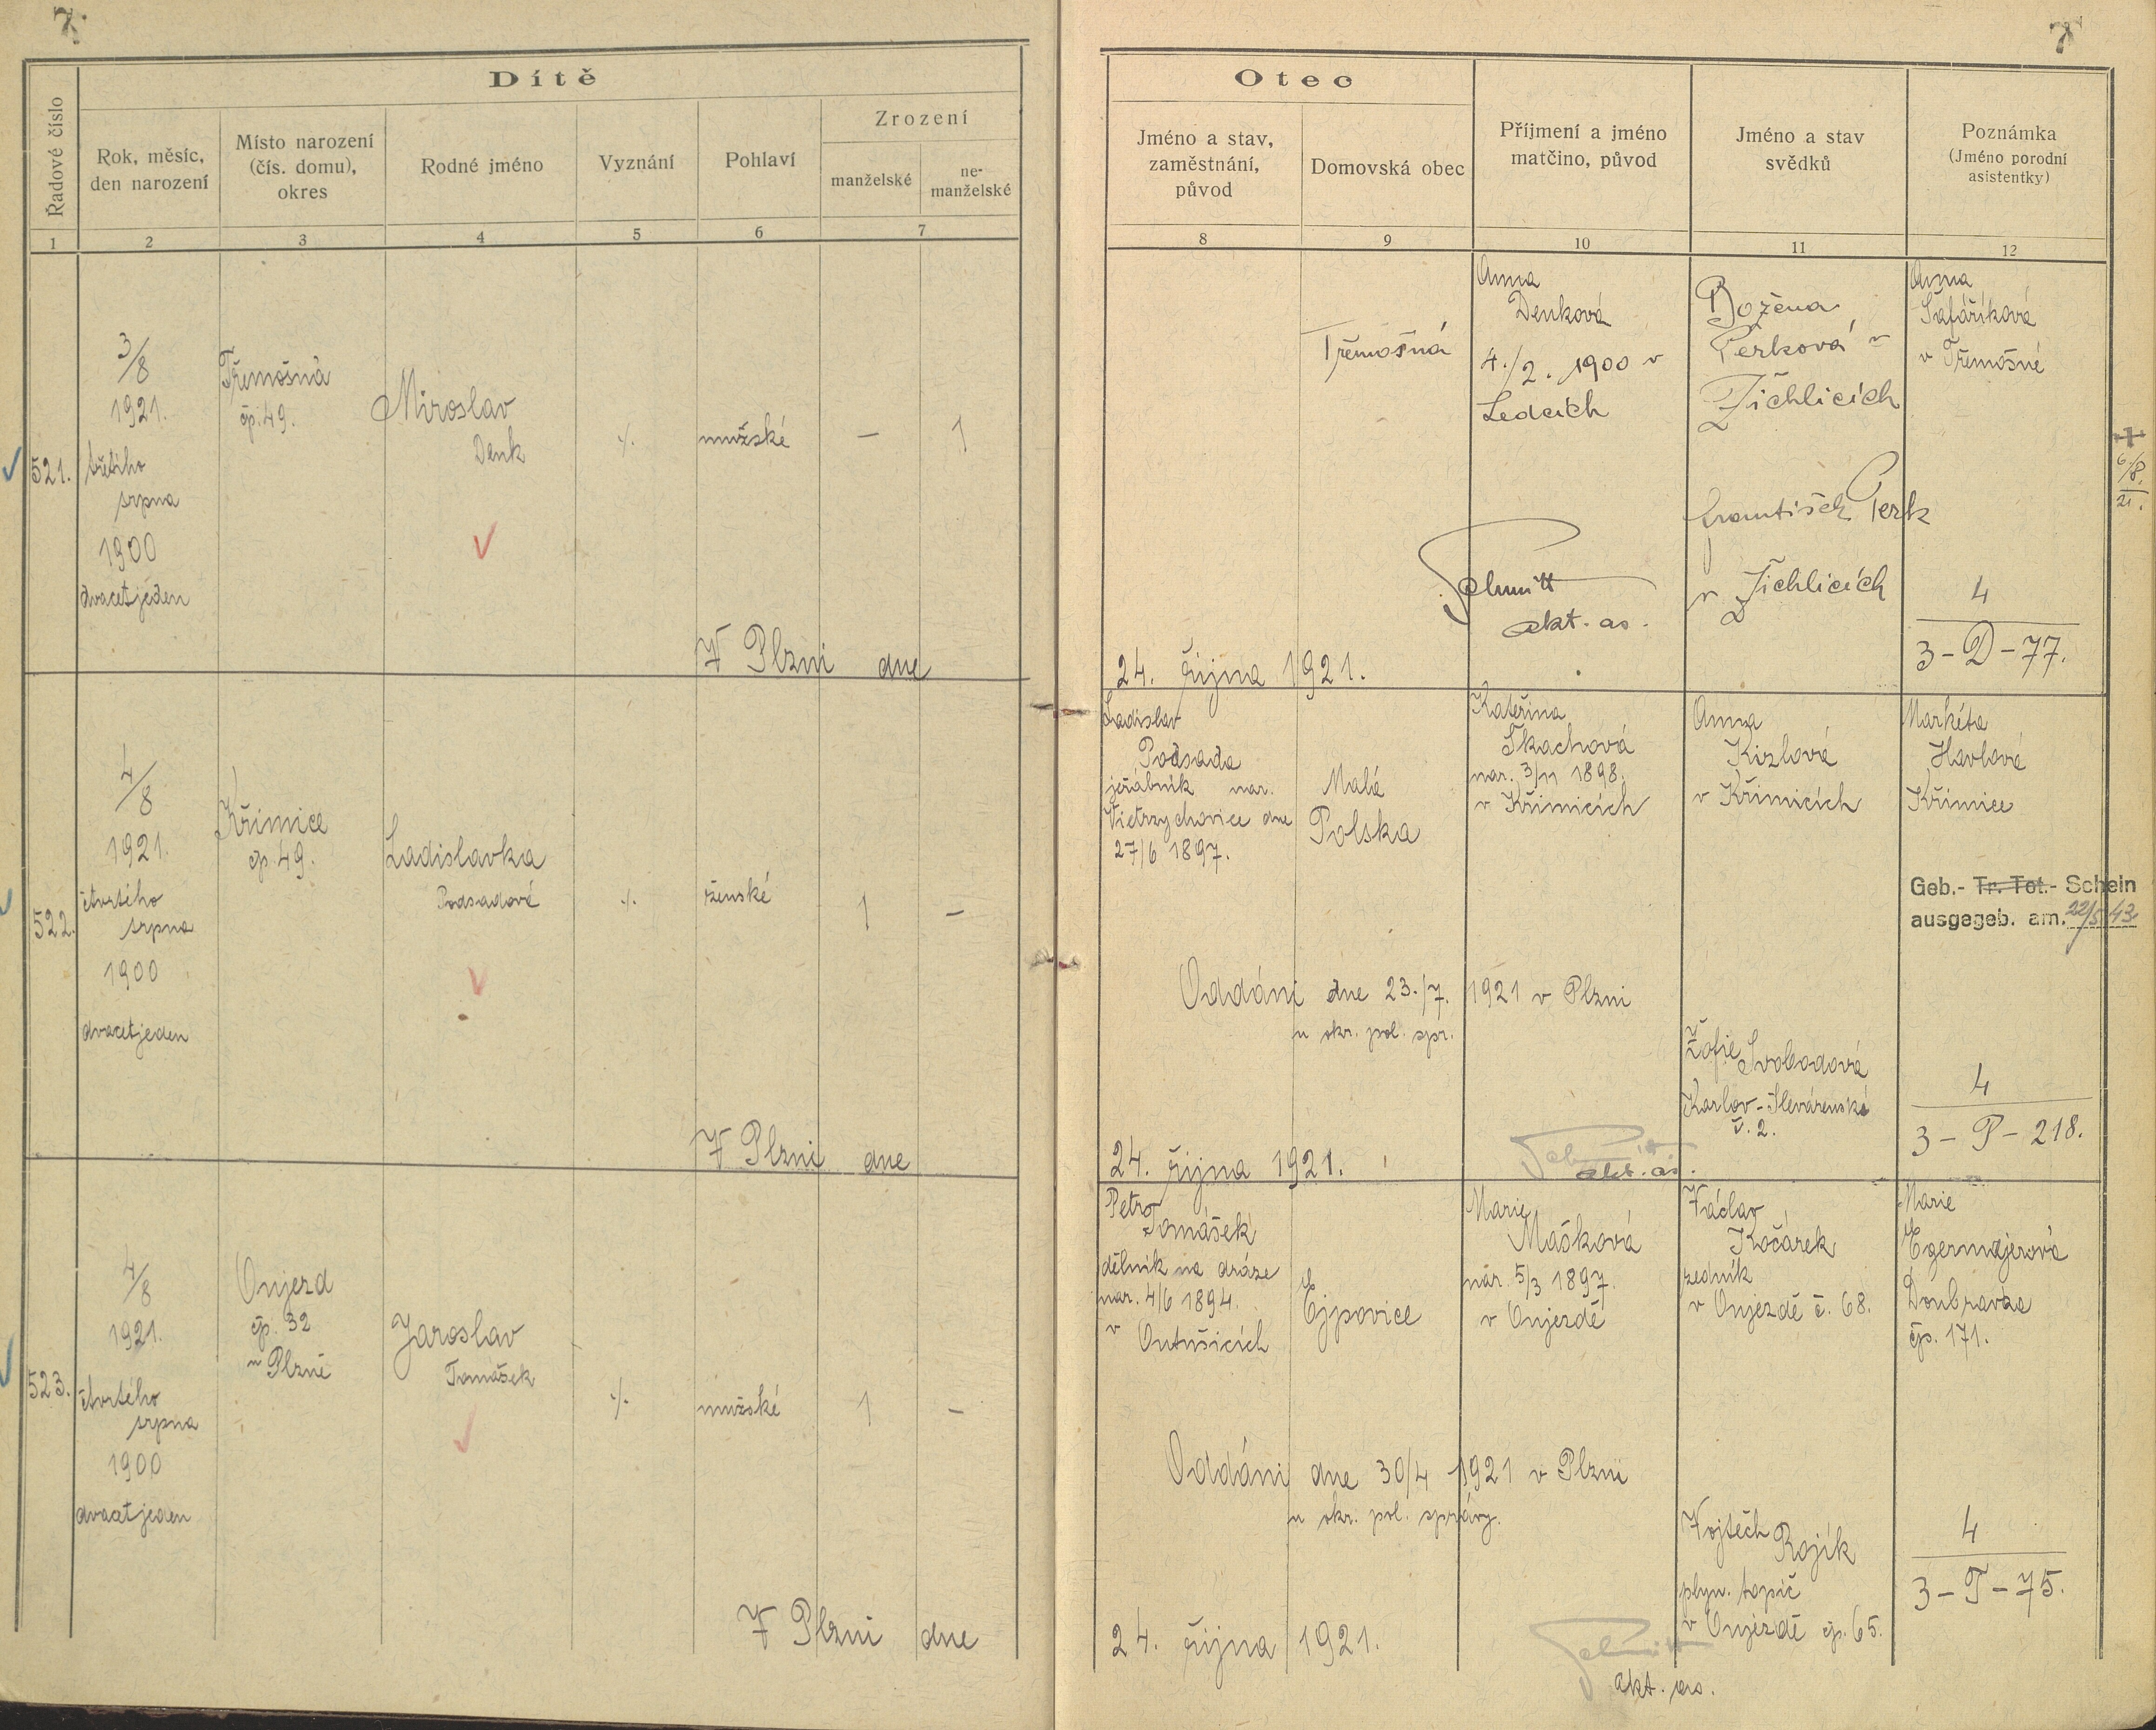 7.
Dítě
Řadové číslo
Rok, měsíc,
den narození
Místo narození
(čís. domu),
okres
Rodné jméno
Vyznání
Pohlaví
Zrození
manželské
ne-
manželské
1
2
3
4
5
6
7
521.
3/8
1921.
třetího
srpna
1900
dvacetjeden
Třemošná
čp. 49.
Miroslav
Denk
./.
mužské
—
1
V Plzni dne
522.
4/8
1921.
čtvrtého
srpna
1900
dvacetjeden
Křimice
čp. 49.
Ladislavka
Podsadová
./.
ženské
1
—
V Plzni dne
523.
4/8
1921.
čtvrtého
srpna
1900
dvacetjeden
Oujezd
čp. 32
u Plzně
Jaroslav
Tomášek
./.
mužské
1
—
V Plzni dne
7
Otec
Jméno a stav,
zaměstnání,
původ
Domovská obec
Příjmení a jméno
matčino, původ
Jméno a stav
svědků
Poznámka
(Jméno porodní
asistentky)
8
9
10
11
12
Třemošná
Anna
Denková
4./2. 1900 v
Ledcích
Božena
Perková v
Žichlicích
František Perk
v Žichlicích
Anna
Šafaříková
v Třemošné
+
6/8.
21.
Schmitt
akt. as.
4
3-D-77.
24. října 1921.
Ladislav
Podsada
jeřábník nar.
Vietrzychovice dne
27/6 1897.
Malá
Polska
Kateřina
Tkachová
nar. 3/11 1898.
v Křimicích
Anna
Kizlová
v Křimicích
Markéta
Havlová
Křimice
Geb.- Tr. Tot.- Schein
ausgegeb. am. 22/5 43
Oddáni dne 23./7. 1921 v Plzni
u okr. pol. spr.
Žofie Svobodová
Karlov - Slevárenská
č. 2.
4
3-P-218.
24. října 1921.
Schmitt
akt. as.
Petr
Tomášek
dělník na dráze
nar. 4/6 1894.
v Outušicích
Ejpovice
Marie
Mašková
nar. 5/3 1897.
v Oujezdě
Václav
Kočárek
zedník
v Oujezdě č. 68.
Marie
Egermajerová
Doubravka
čp. 171.
Oddáni dne 30/4 1921 v Plzni
u okr. pol. správy.
Vojtěch Rojík
plyn. topič
v Oujezdě čp. 65.
4
3-T-75.
24. října 1921.
Schmitt
akt. as.